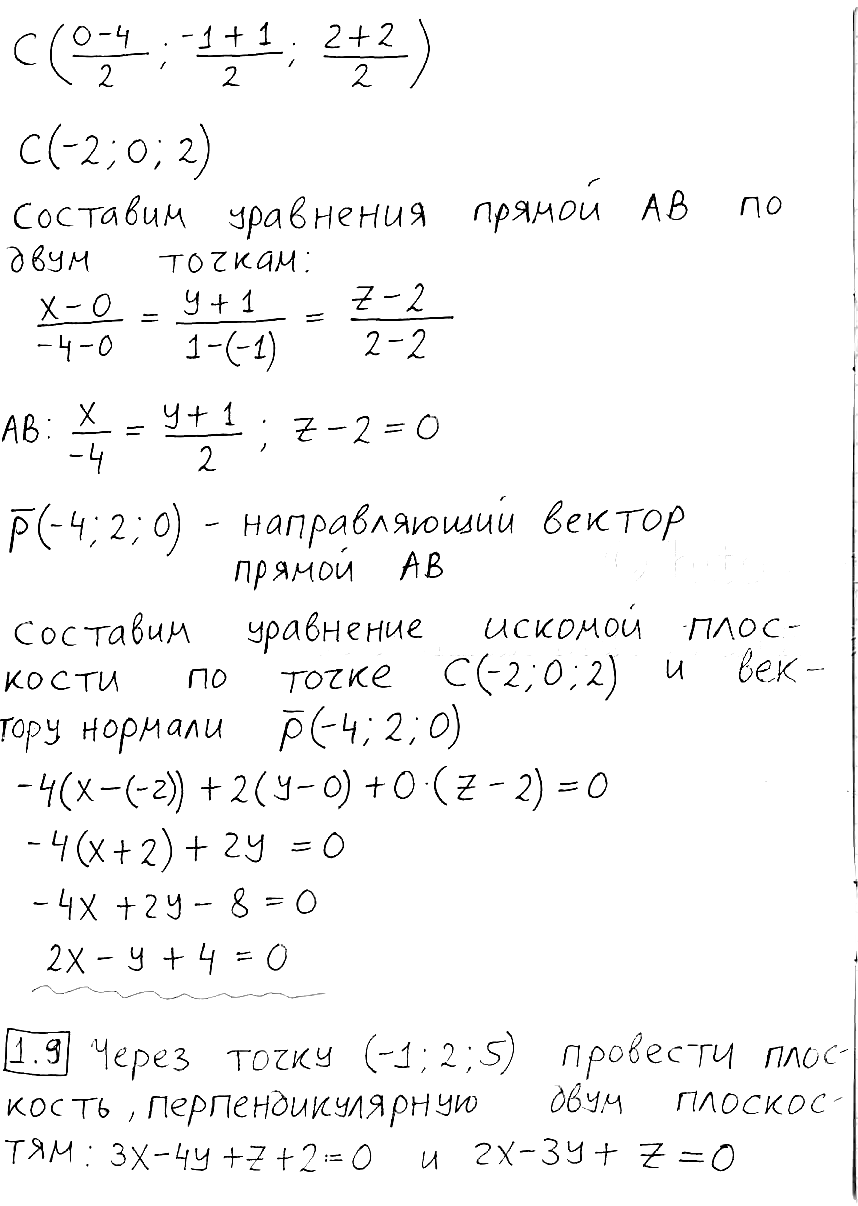 C((0-4)/2; (-1+1)/2; (2+2)/2)
C(-2; 0; 2)
Составим уравнения прямой AB по
двум точкам:
(x-0)/(-4-0) = (y+1)/(1-(-1)) = (z-2)/(2-2)
AB: x/-4 = (y+1)/2; z-2=0
p̄(-4; 2; 0) - направляющий вектор
прямой AB
Составим уравнение искомой плос-
кости по точке C(-2; 0; 2) и век-
тору нормали p̄(-4; 2; 0)
-4(x-(-2)) + 2(y-0) + 0·(z-2) = 0
-4(x+2) + 2y = 0
-4x + 2y - 8 = 0
2x - y + 4 = 0
1.9 Через точку (-1; 2; 5) провести плос-
кость, перпендикулярную двум плоскос-
тям: 3x-4y+z+2=0 и 2x-3y+z=0